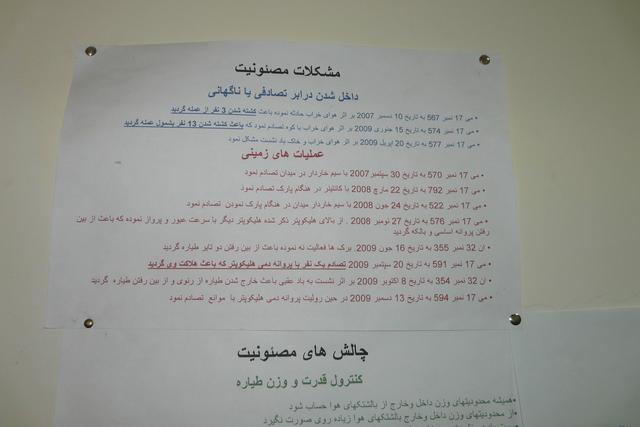 مشکلات مصئونیت
داخل شدن درابر تصادفی یا ناگهانی
• می 17 نمبر 567 به تاریخ 10 دسمبر 2007 بر اثر هوای خراب حادثه نموده باعث کشته شدن 3 نفر از عمله گردید
• می 17 نمبر 574 به تاریخ 15 جنوری 2009 بر اثر هوای خراب با کوه تصادم نمود که باعث کشته شدن 13 نفر بشمول عمله گردید
• می 17 نمبر 577 به تاریخ 20 اپریل 2009 بر اثر هوای خراب و خاک باد نشست مشکل نمود
عملیات های زمینی
• می 17 نمبر 570 به تاریخ 30 سپتمبر2007 با سیم خاردار در میدان تصادم نمود
• می 17 نمبر 792 به تاریخ 22 مارچ 2008 با کانتینر در هنگام پارک تصادم نمود
• می 17 نمبر 522 به تاریخ 24 جون 2008 با سیم خاردار میدان در هنگام پارک نمودن تصادم نمود
• می 17 نمبر 576 به تاریخ 27 نومبر 2008 . از بالای هلیکوپتر ذکر شده هلیکوپتر دیگر با سرعت عبور و پرواز نموده که باعث از بین
رفتن پروانه اساسی و بالکه گردید
• ان 32 نمبر 355 به تاریخ 16 جون 2009. برک ها فعالیت نه نموده باعث از بین رفتن دو تایر طیاره گردید
• می 17 نمبر 591 به تاریخ 20 سپتمبر 2009 تصادم یک نفر با پروانه دمی هلیکوپتر که باعث هلاکت وی گردید
• ان 32 نمبر 354 به تاریخ 8 اکتوبر 2009 بر اثر نشست به باد عقبی باعث خارج شدن طیاره از رنوی و از بین رفتن طیاره گردید
• می 17 نمبر 594 به تاریخ 13 دسمبر 2009 در حین رولیت پروانه دمی هلیکوپتر با موانع تصادم نمود
چالش های مصئونیت
کنترول قدرت و وزن طیاره
•همیشه محدودیتهای وزن داخل وخارج از بالشتکهای هوا حساب شود
•از محدودیتهای وزن داخل وخارج بالشتکهای هوا زیاده روی صورت نگیرد